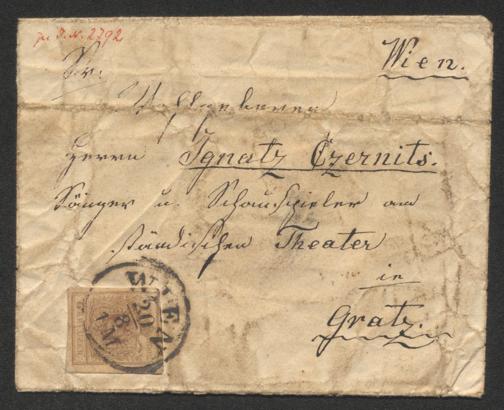 zu I.N. 2792
Wien.
Sr.
Wohlgeboren
Herrn Ignatz Czernits.
Sänger u. Schauspieler am
ständischen Theater
in
Gratz.
WIEN
20
8
1.M